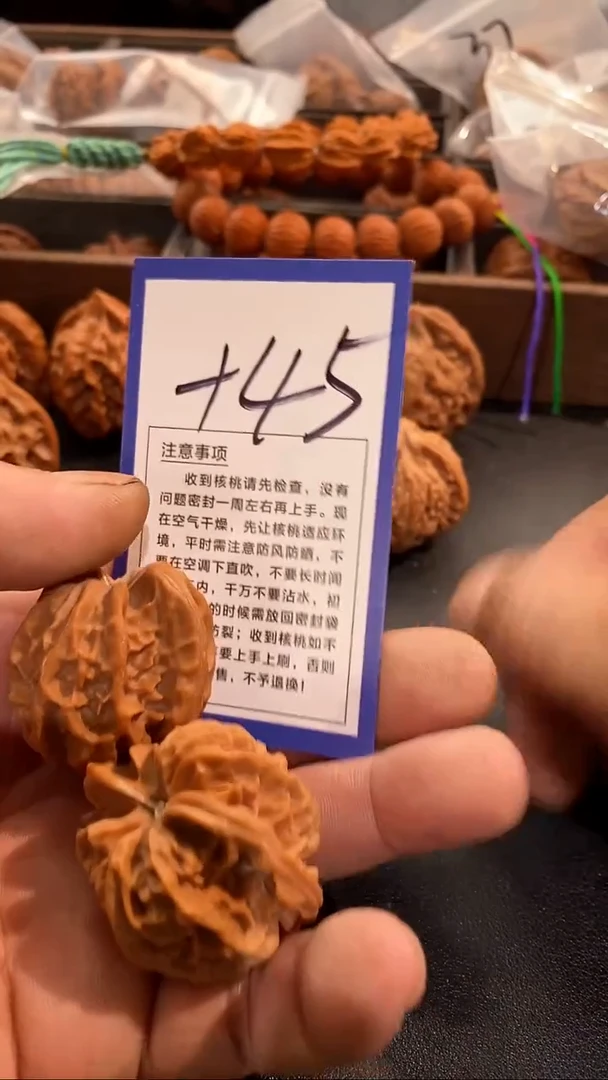 +45
注意事项
收到核桃请先检查，没有
问题密封一周左右再上手。现
在空气干燥，先让核桃适应环
境，平时需注意防风防晒，不
要在空调下直吹，不要长时间
内，千万不要沾水，初
的时候需放回密封袋
防裂；收到核桃如不
要上手上刷，否则
售，不予退换！